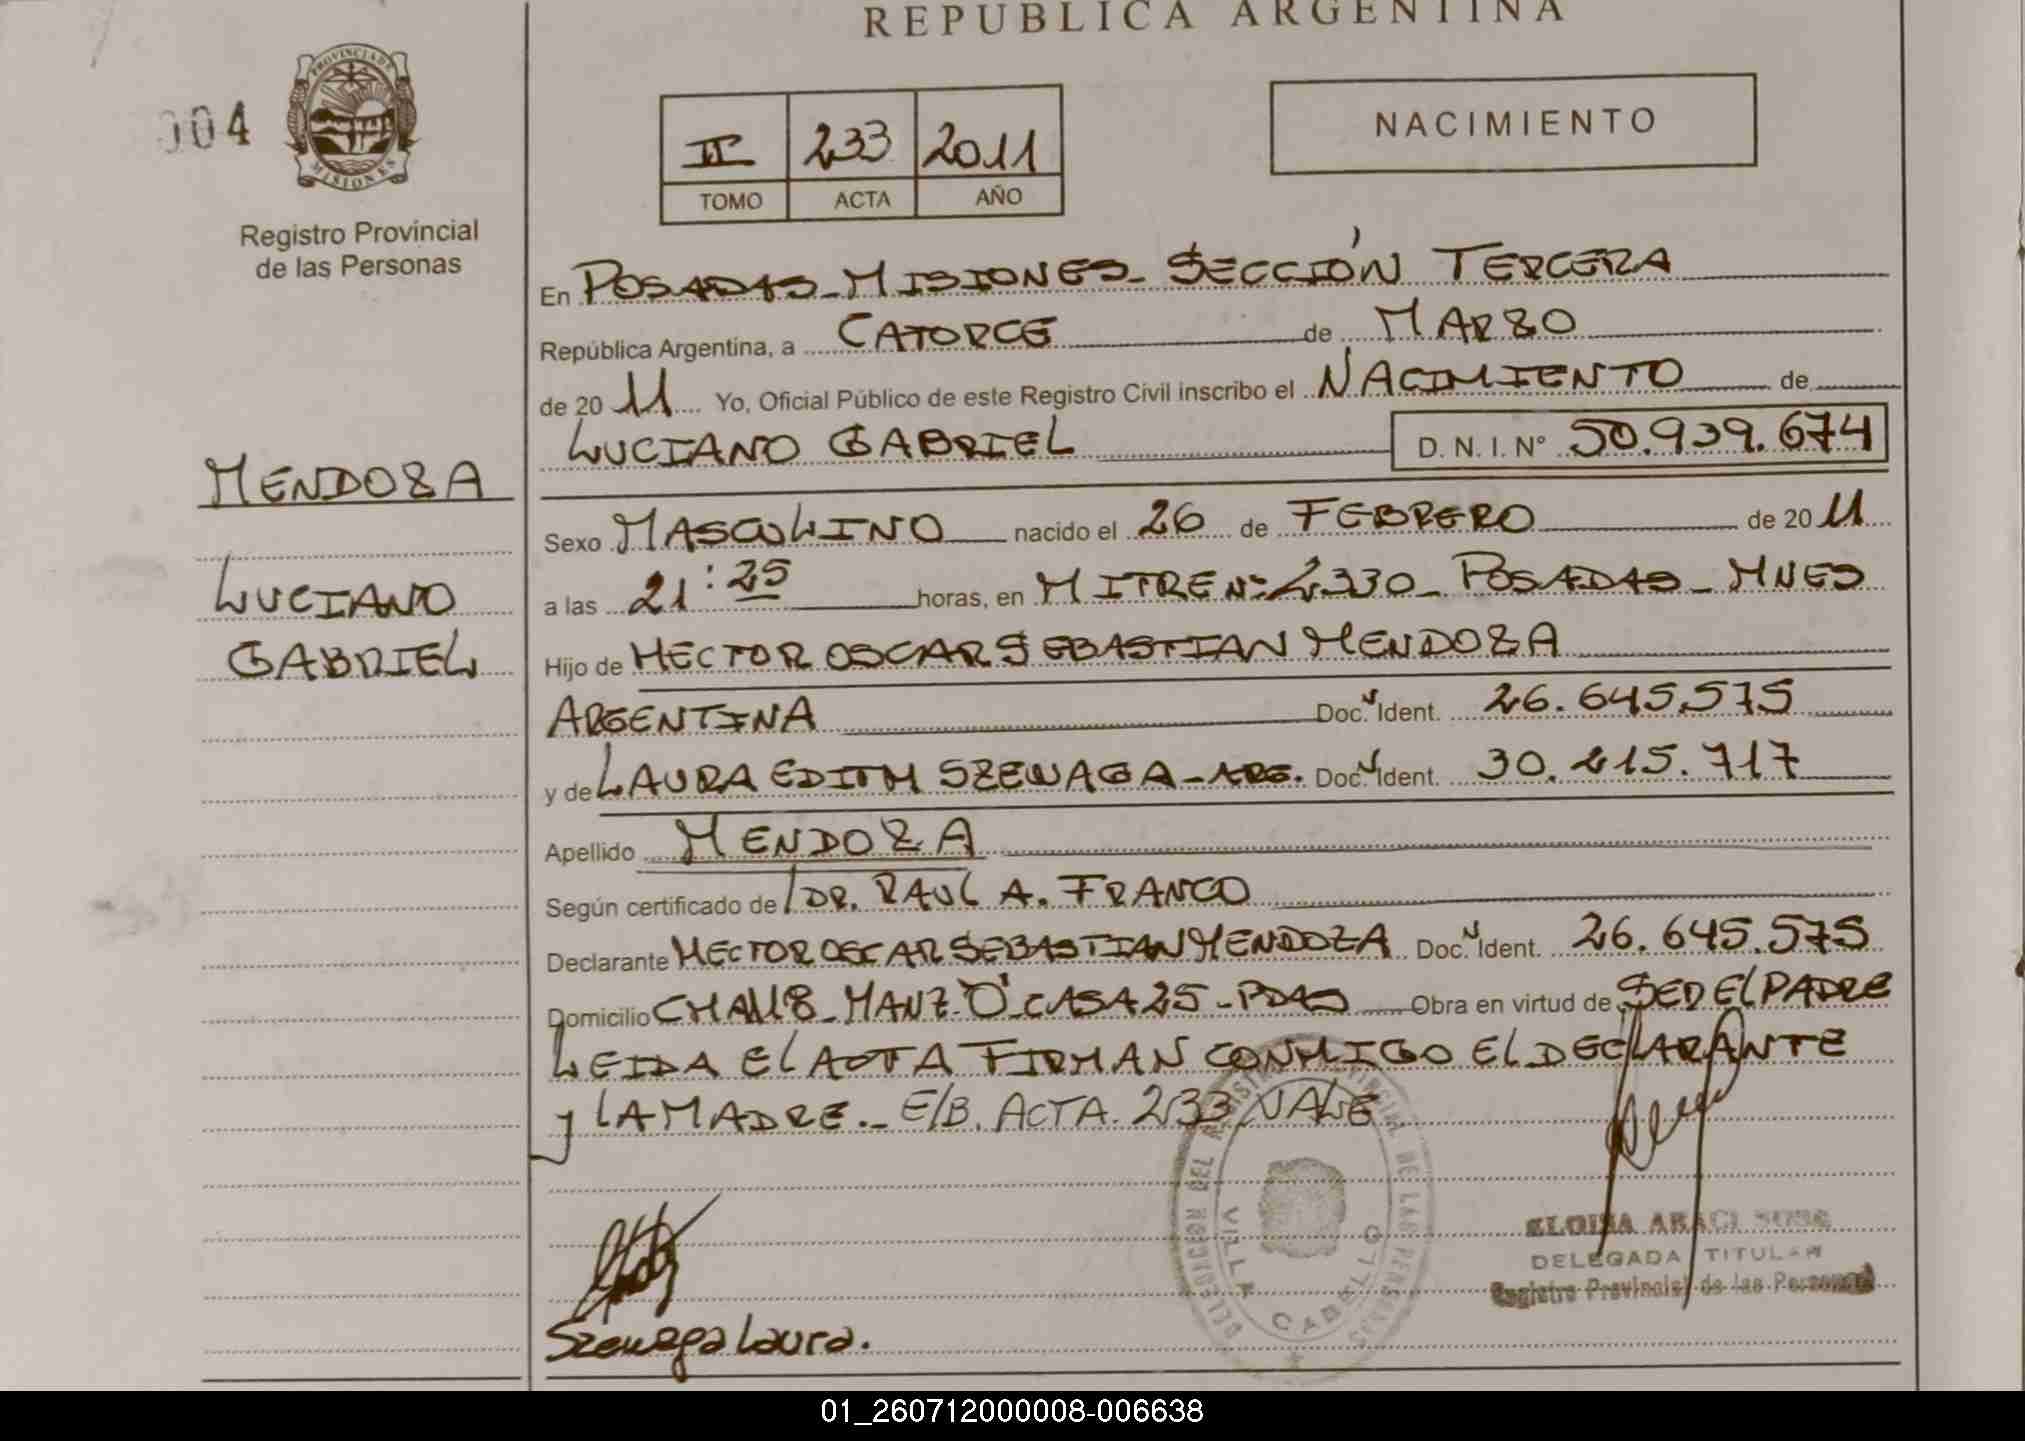 REPUBLICA ARGENTINA
004
PROVINCIA DE
MISIONES
Registro Provincial
de las Personas
II 233 2011
TOMO ACTA AÑO
NACIMIENTO
En POSADAS - MISIONES - SECCIÓN TERCERA
República Argentina, a CATORCE de MARZO
de 2011 Yo, Oficial Público de este Registro Civil inscribo el NACIMIENTO de
LUCIANO GABRIEL D. N. I. N° 50.939.674
MENDOZA
LUCIANO
GABRIEL
Sexo MASCULINO nacido el 26 de FEBRERO de 2011
a las 21:25 horas, en MITRE Nº 2330 - POSADAS - MNES
Hijo de HECTOR OSCAR SEBASTIAN MENDOZA
ARGENTINA Doc. Ident. 26.645.575
y de LAURA EDITH SZEWAGA - ARG. Doc. Ident. 30.215.717
Apellido MENDOZA
Según certificado de DR. RAUL A. FRANCO
Declarante HECTOR OSCAR SEBASTIAN MENDOZA Doc. Ident. 26.645.575
Domicilio CHA 118 - MANZ "O" CASA 25 - PDAS Obra en virtud de SER EL PADRE
LEIDA EL ACTA FIRMAN CONMIGO EL DECLARANTE
y LA MADRE. - E/B. ACTA. 233 VALE
DELEGACION DEL REGISTRO PROVINCIAL DE LAS PERSONAS
VILLA CABELLO
ELOISA ARACI
DELEGADA TITULAR
Registro Provincial de las Personas
Szewaga Laura.
01_260712000008-006638